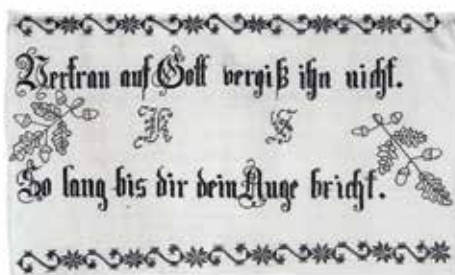 Vertrau auf Gott vergiß ihn nicht.
K S
So lang bis dir dein Auge bricht.